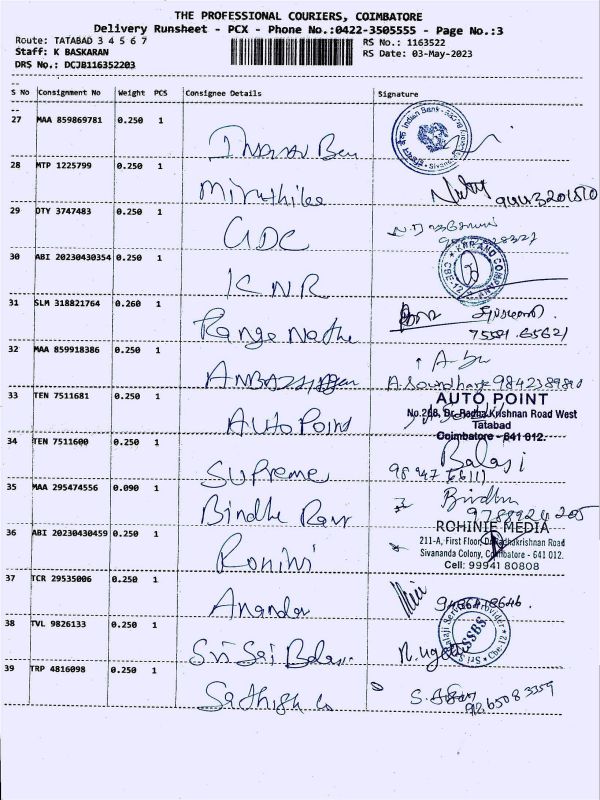 THE PROFESSIONAL COURIERS, COIMBATORE
Delivery Runsheet - PCX - Phone No.:0422-3505555 - Page No.:3
Route: TATABAD 3 4 5 6 7 RS No.: 1163522
Staff: K BASKARAN RS Date: 03-May-2023
DRS No.: DCJB116352203
S No Consignment No Weight PCS Consignee Details Signature
27 MAA 859869781 0.250 1
Indian Bank
28 MTP 1225799 0.250 1 Miruthilaa
29 DTY 3747483 0.250 1 GDC
30 ABI 20230430354 0.250 1 KNR
KNR AND COMPANY CBE-12
31 SLM 318821764 0.260 1 Range Nathe
32 MAA 859918386 0.250 1
9842389890
33 TEN 7511681 0.250 1 Auto Point
AUTO POINT
No.268, Dr. Radha Krishnan Road West
Tatabad
Coimbatore - 641 012.
34 TEN 7511600 0.250 1 Supreme Balaji
35 MAA 295474556 0.090 1 Bindhu Bindhu
36 ABI 20230430459 0.250 1 Rohini
ROHINIE MEDIA
211-A, First Floor, Dr.Radhakrishnan Road
Sivananda Colony, Coimbatore - 641 012.
Cell: 99941 80808
37 TCR 29535006 0.250 1 Anandan
38 TVL 9826133 0.250 1 Sri Sai Balaji
SSBS Cbe-12
39 TRP 4816098 0.250 1 Sathish
9265083359